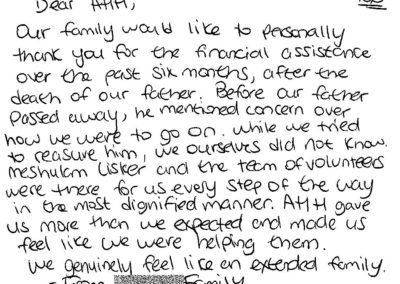 Dear AHH,
Our family would like to personally
thank you for the financial assistance
over the past six months, after the
death of our father. Before our father
passed away, he mentioned concern over
how we were to go on. While we tried
to reasure him, we ourselves did not know.
Meshulam Lisker and the team of volunteers
were there for us every step of the way
in the most dignified manner. AHH gave
us more than we expected and made us
feel like we were helping them.
We genuinely feel like an extended family.
Family